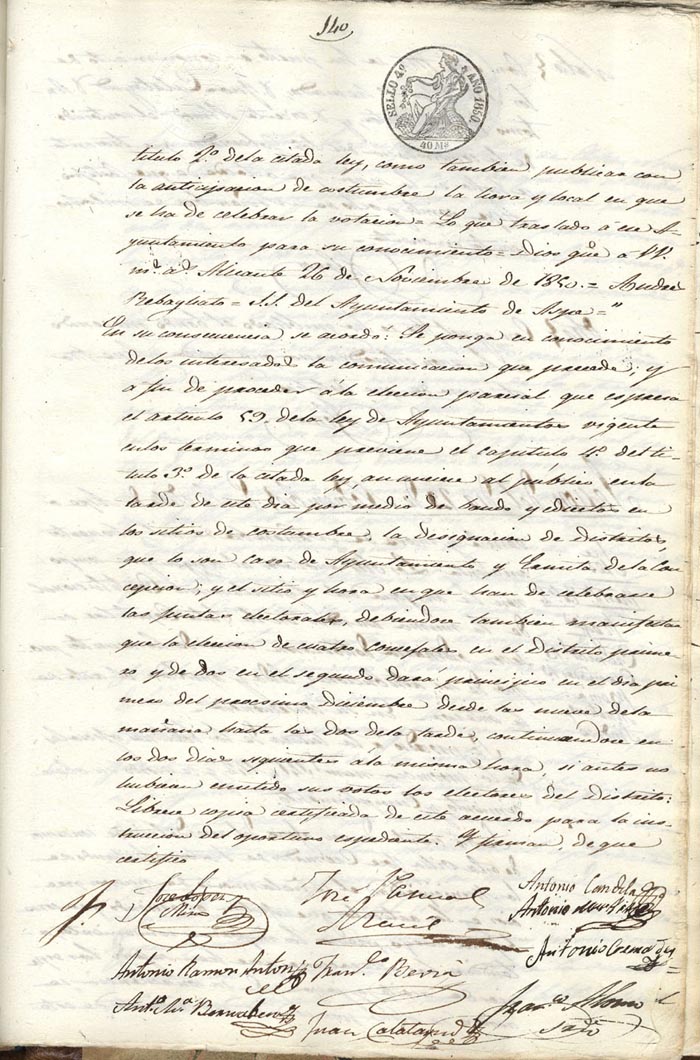 140
SELLO 4º AÑO 1850
40 Ms
titulo 2.º de la citada ley, como tambien publicar con
la anticipacion de costumbre la hora y local en que
se ha de celebrar la votacion = Lo que traslado á ese A-
yuntamiento para su conocimiento = Dios gue. á VV.
m.s a.s Alicante 26 de Noviembre de 1850. = Andres
Rebagliato = S.S. del Ayuntamiento de Aspe = "
En su consecuencia se acordó: Se ponga en conocimiento
de los interesados la comunicacion que precede; y
a fin de proceder á la eleccion parcial que espresa
el articulo 59. de la ley de Ayuntamientos vigente
en los terminos que previene el capitulo 4º del ti-
tulo 3º de la citada ley, anunciese al publico en la
tarde de este dia por medio de bando y edictos en
los sitios de costumbre, la designacion de Distritos,
que lo son casa de Ayuntamiento y Ermita de la Con
cepcion; y el sitio y hora en que han de celebrarse
las juntas electorales, debiendose tambien manifestar
que la eleccion de cuatro consejales en el distrito prime-
ro y de dos en el segundo dará principio en el dia pri
mero del procsimo Diciembre desde las nueve de la
mañana hasta las dos de la tarde, continuandose en
los dos dias siguientes á la misma hora, si antes no
hubieran emitido sus votos los electores del Distrito:
Librese copia certificada de este acuerdo para la ins-
truccion del oportuno espediente. Y firman de que
certifico
José López
José Pascual
Antonio Candela
Antonio
Antonio Cremades
Antonio Ramon Anton
Fran.co Beviá
Ant.o M.a Bernabeu
Juan Calatayud
Fran.co Alonso
Srio